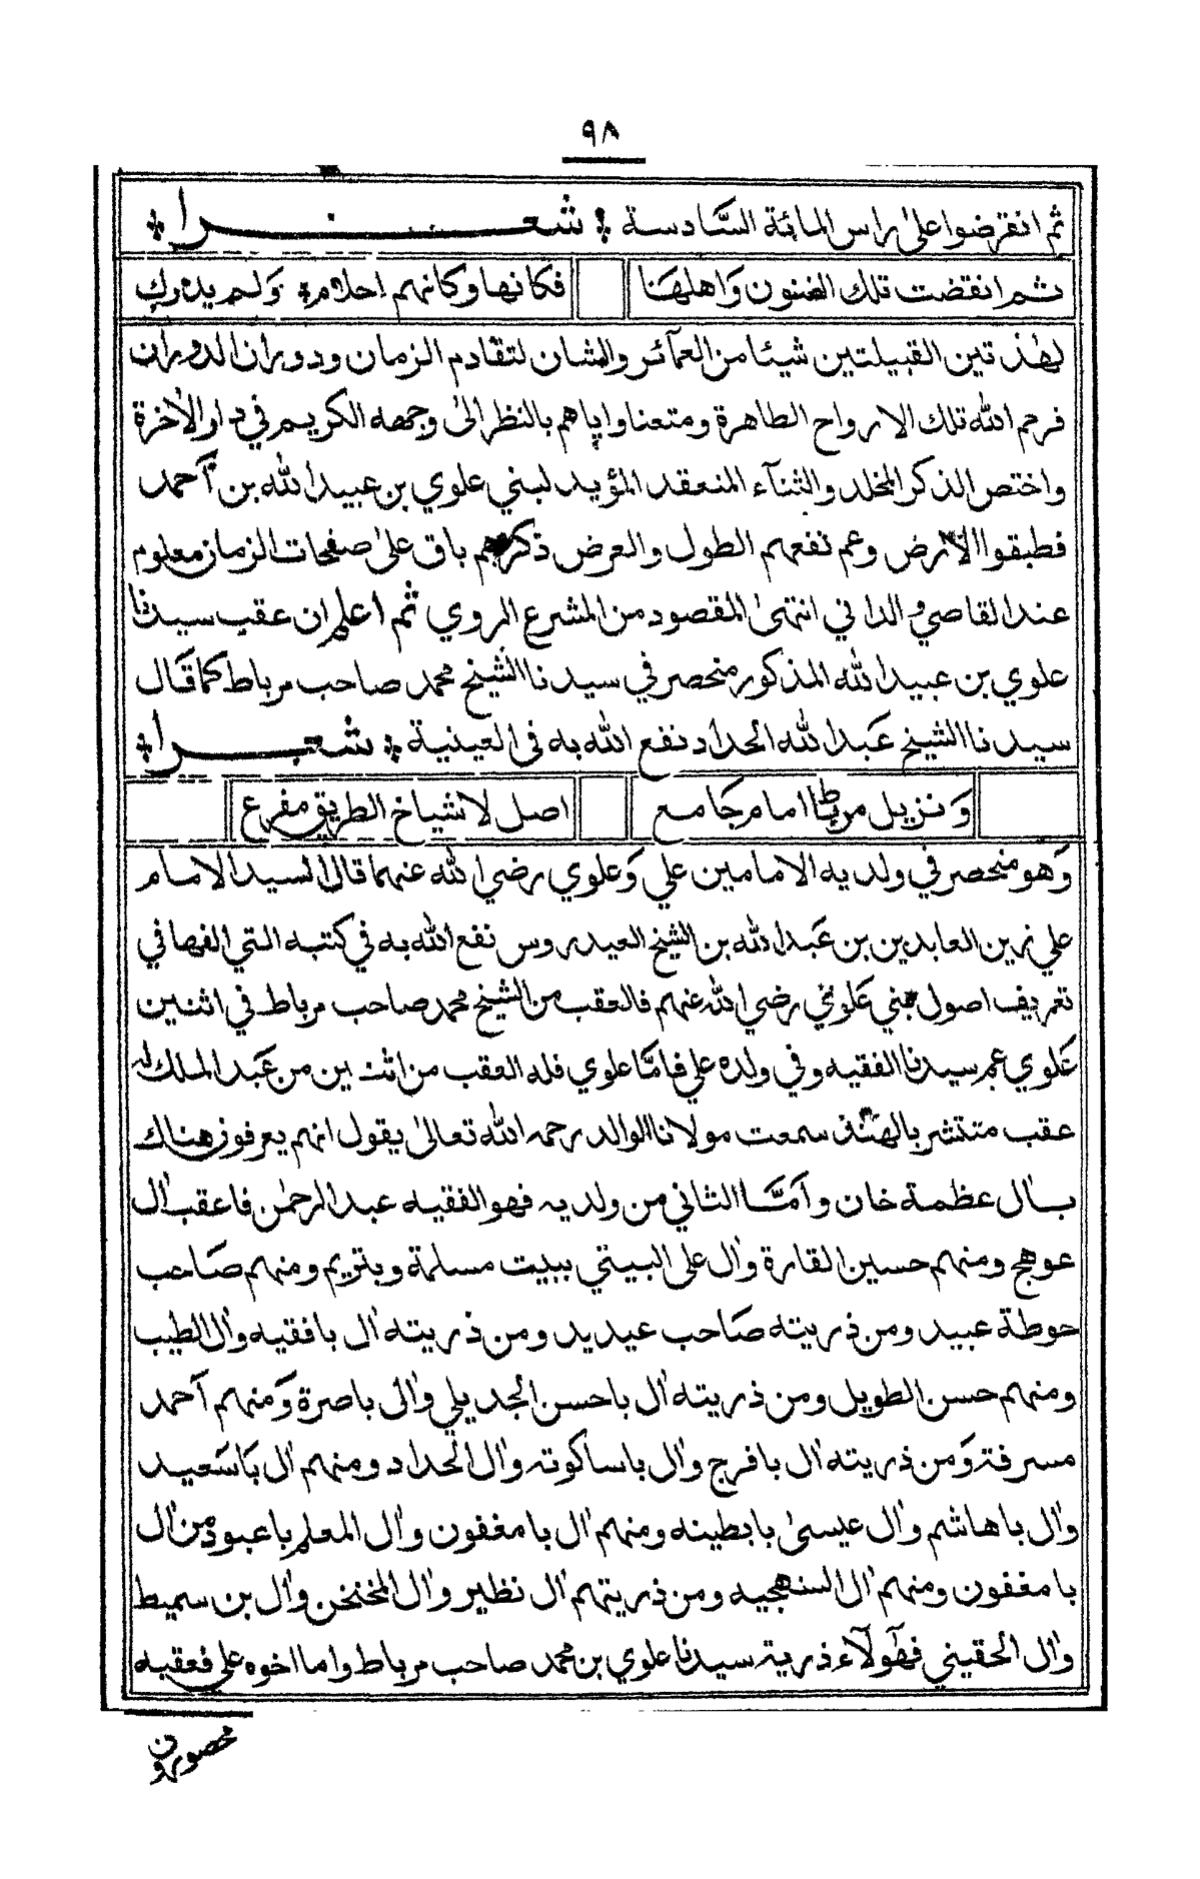 ٩٨
ثم انقرضوا على راس المائة السَّادسة ❊ شعرا ❊
ثم انقضت تلك الفنون وَاهلهَا فكانها وكانهم احلام وَلم يدرك
لهٰذتين القبيلتين شيئا من العمآئر والشان لتقادم الزمان ودوران الدوران
فرحم الله تلك الارواح الطاهرة ومتعنا واياهم بالنظر الىٰ وجهه الكريم في دار الاٰخرة
واختص الذكر المخلد والثنآء المنعقد المؤيد لبني علوي بن عبيد الله بن اَحمد
فطبقوا الاَرض وعم نفعهم الطول والعرض ذكرهم باق علىٰ صفحات الزمان معلوم
عند القاصي والداني انتهىٰ المقصود من المشرع الروي ثم اعلم ان عقب سيدنا
علوي بن عبيد الله المذكور منحصر في سيدنا الشيخ محمد صاحب مرباط كما قَال
سيدنا الشيخ عَبد الله الحداد نفع الله به فى العينية ❊ شعرا ❊
وَنزيل مرباط امام جَامع اصل لاشياخ الطريق مفرع
وَهو منحصر في ولديه الامامين علي وَعلوي رضي الله عنهما قال السيد الامام
علي زين العابدين بن عَبد الله بن الشيخ العيدروس نفع الله به في كتبه التي الفها في
تعريف اصول بني علوي رضي الله عنهم فالعقب من الشيخ محمد صاحب مرباط في اثنين
عَلوي عم سيدنا الفقيه وفي ولده علي فامَّا علوي فله العقب من اثنين من عَبد الملك له
عقب منتشر بالهند سمعت مولانا الوالد رحمه الله تعالىٰ يقول انهم يعرفون هناك
باٰل عظمة خان وَاَمَّا الثاني من ولديه فهو الفقيه عبد الرحمٰن فاعقب اٰل
عوهج ومنهم حسين القارة واٰل على البيتي ببيت مسلمة وبتريم ومنهم صَاحب
حوطة عبيد ومن ذريته صَاحب عيديد ومن ذريته اٰل بافقيه واٰل الطيب
ومنهم حسن الطويل ومن ذريته اٰل باحسن الجديلي واٰلى باصرة وَمنهم اَحمد
مسرفة وَمن ذريته اٰل بافرج واٰل باساكوته واٰل الحداد ومنهم اٰل بَاسَعيد
واٰل باهاشم واٰل عيسىٰ بابطينه ومنهم اٰل بامغفون واٰل المعلم باعبود من اٰل
بامغفون ومنهم اٰل السنهجيه ومن ذريتهم اٰل نظير واٰل المخنخن واٰل بن سميط
واٰل الحقيني فهٰؤلآء ذرية سيدنا علوي بن محمد صاحب مرباط واما اخوه علي فعقبه
محصورون